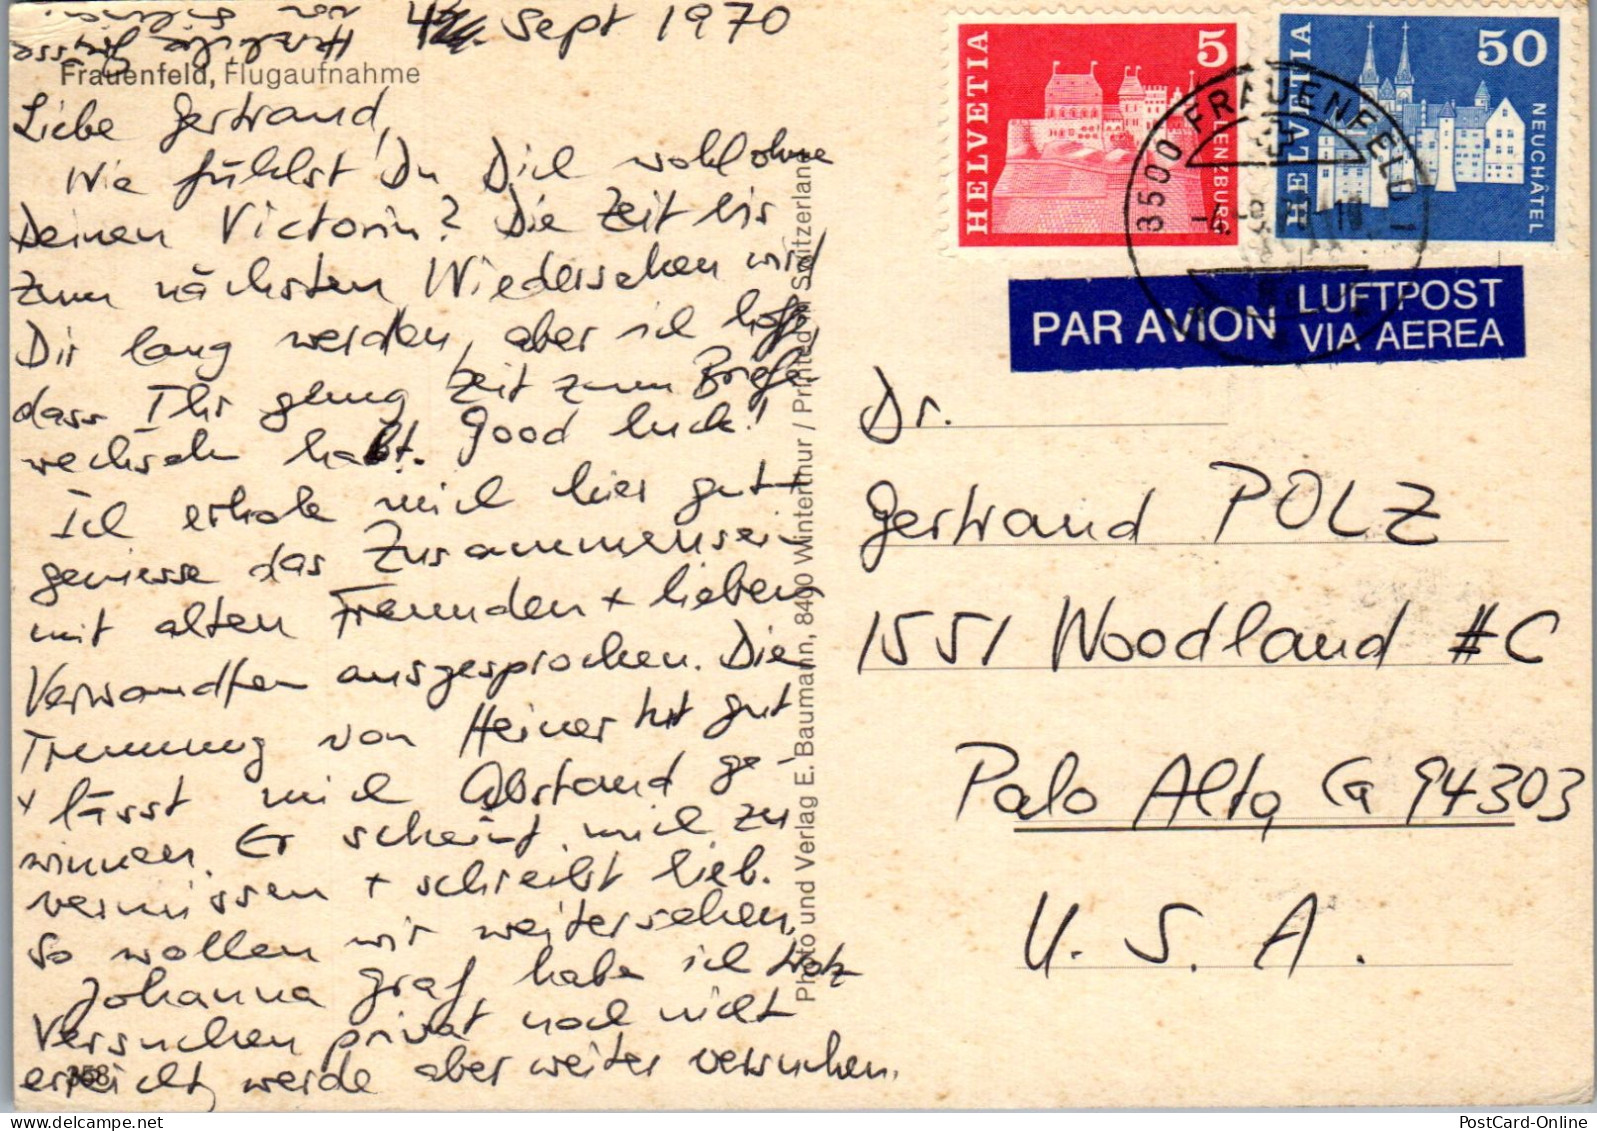 4. Sept 1970
Herzliche Grüsse
von
Frauenfeld, Flugaufnahme
Liebe Gertrand,
Wie fühlst Du Dich wohl ohne
Deinen Victorin? Die Zeit bis
zum nächsten Wiedersehen wird
Dir lang werden, aber ich hoffe,
dass Ihr genug Zeit zum Briefe
wechseln habt. Good luck!
Ich erhole mich hier gut +
geniesse das Zusammensein
mit alten Freunden + lieben
Verwandten ausgesprochen. Die
Trennung von Heiner tut gut
+ lässt mich Abstand ge-
winnen. Er scheint mich zu
vermissen + schreibt lieb.
So wollen wir weitersehen.
Johanna Graf habe ich trotz
Versuchen privat noch nicht
erreicht, werde aber weiter versuchen.
358
Photo und Verlag E. Baumann, 8400 Winterthur / Printed in Switzerland
HELVETIA 5 LENZBURG
HELVETIA 50 NEUCHÂTEL
8500 FRAUENFELD 1
PAR AVION LUFTPOST
VIA AEREA
Dr.
Gertrand POLZ
1551 Woodland #C
Palo Alto, Ca 94303
U. S. A.
PostCard-Online